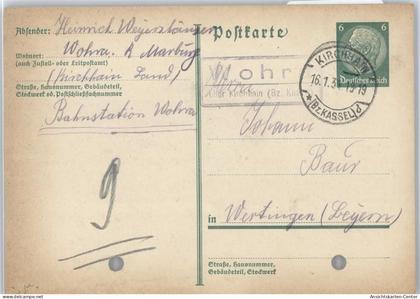 Absender: Heinrich
Wohnort: Wohra. K Marburg
(auch Zustell- oder Leitpostamt)
(Kirchhain Land)
Straße, Hausnummer,
Gebäudeteil,
Stockwerk od. Postschließfachnummer
Bahnstation Wohra
Postkarte
6 6
Deutsches Reich
KIRCHHAIN
(BZ. KASSEL)
Wohr
Kirchhain (Bz.
Herrn
Johann
Baur
in Wertingen (Bayern)
Straße, Hausnummer,
Gebäudeteil, Stockwerk
9
www.ansichtskarten-center.de